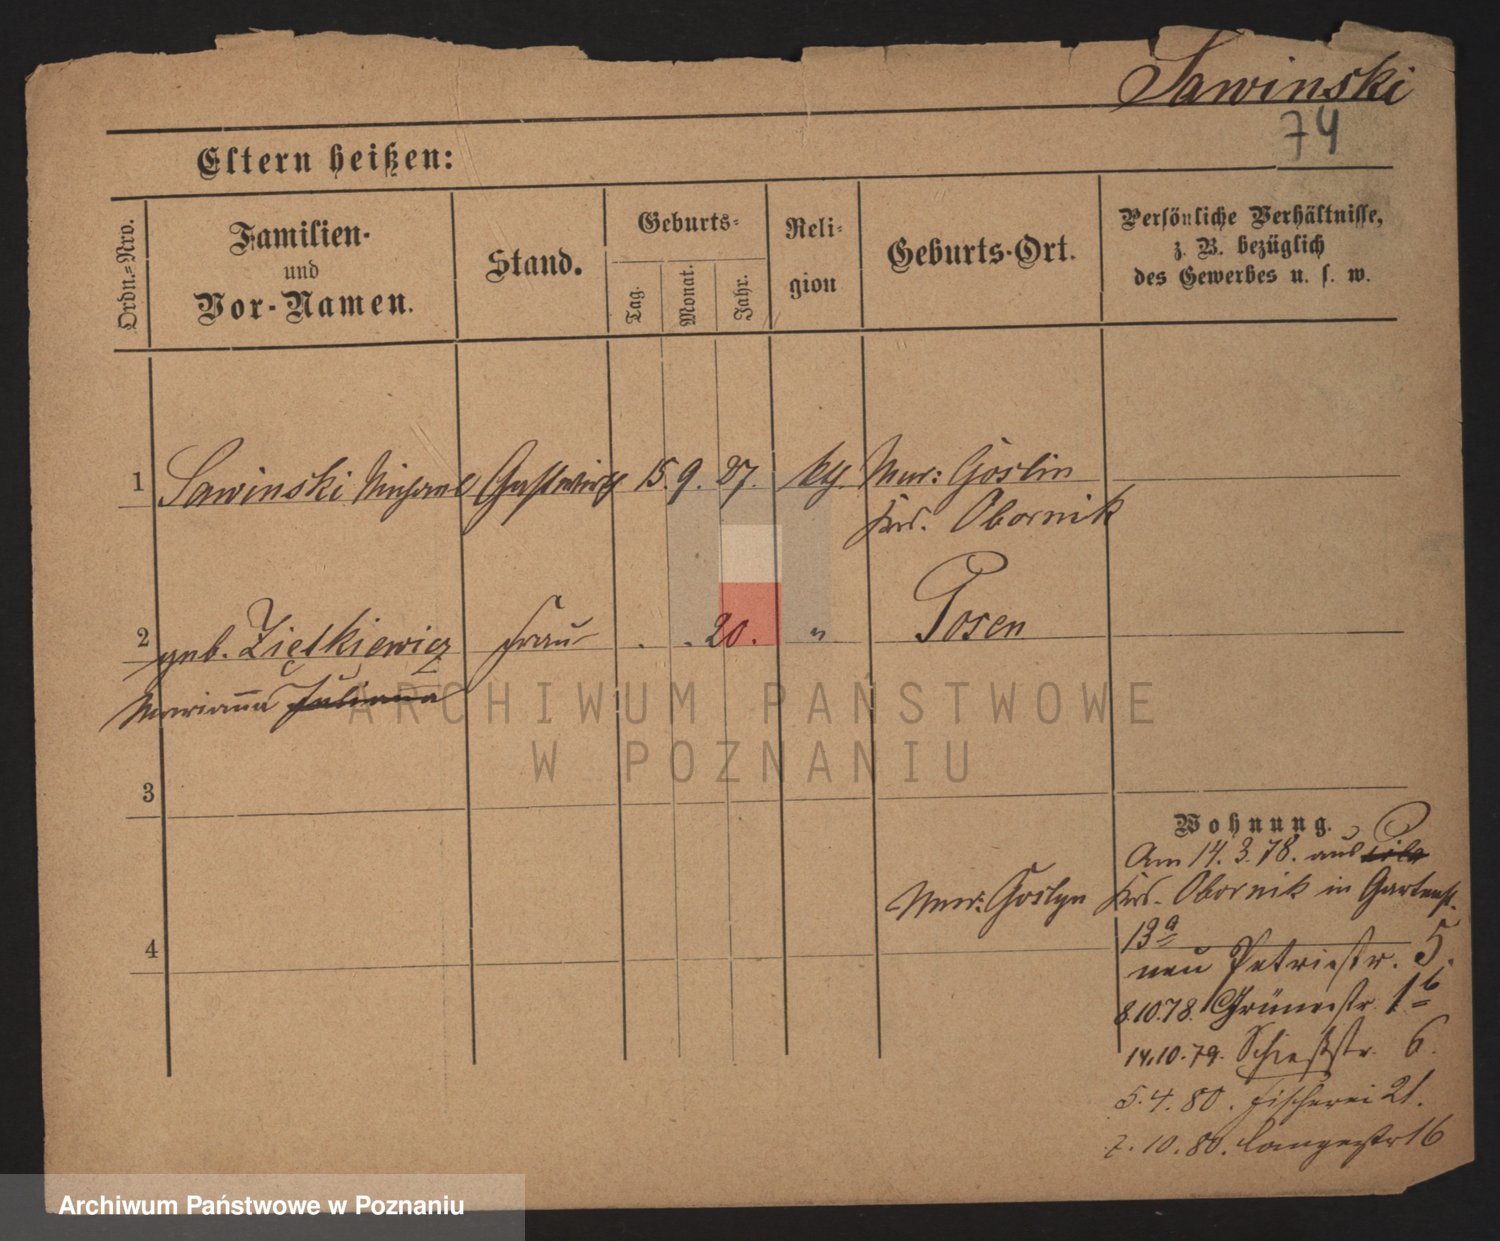 Sawinski
74
Eltern heißen:
Ordn.-Nro.
Familien-
und
Vor-Namen.
Stand.
Geburts-
Tag.
Monat.
Jahr.
Reli-
gion
Geburts-Ort.
Persönliche Verhältnisse,
z. B. bezüglich
des Gewerbes u. s. w.
1 Sawinski Michael Gastwirth 15. 9. 27. kth. Mur: Goslin
Krs. Obornik
2 geb. Ziętkiewicz Frau . . 20. " Posen
Marianna Juliana
ARCHIWUM PAŃSTWOWE
W POZNANIU
3
Wohnung.
Am 14. 3. 78. aus
Mur: Goslyn Krs. Obornik in Gartenst.
13a
4
neu Petristr. 5.
8.10.78. Grünestr. 1b
14.10.79. Schießstr. 6.
5.4.80. Fischerei 21.
7.10.80. Langestr 16
Archiwum Państwowe w Poznaniu